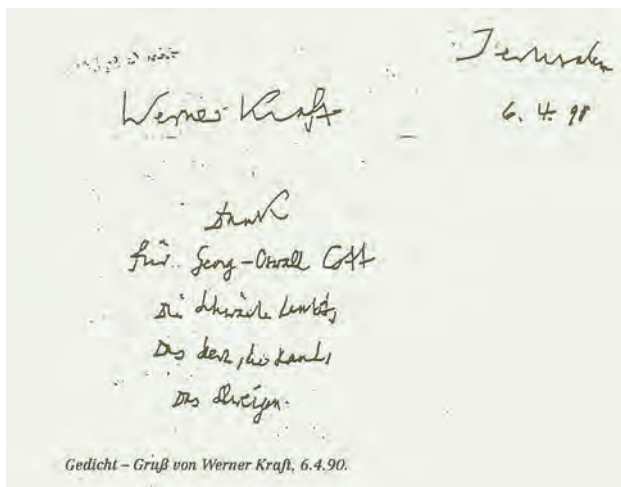 Jerusalem
Werner Kraft
6. 4. 90
Dank
für Georg-Oswald Cott
Die Schwäche
Das Herz, die Hand,
Das Schweigen.
Gedicht – Gruß von Werner Kraft, 6.4.90.